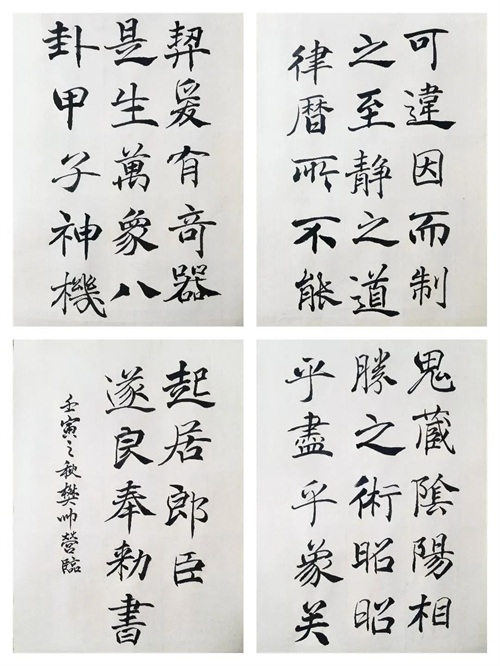 可違因而制
之至静之道
律暦所不能
契爰有奇器
是生萬象八
卦甲子神機
鬼藏陰陽相
勝之術昭昭
乎盡乎象矣
起居郎臣
遂良奉勑書
壬寅之秋樊帅營臨